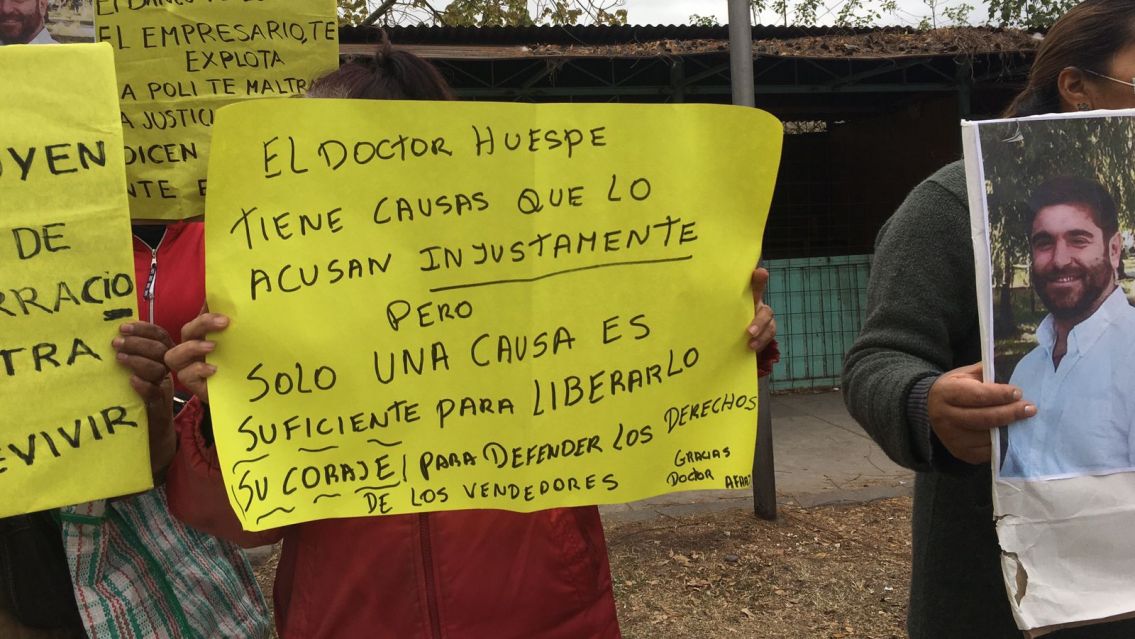 EL EMPRESARIO, TE
EXPLOTA
A POLI TE MALTRA
A JUSTIC
DICEN
NTE E
UYEN
DE
RRACIO
TRA
EVIVIR
EL DOCTOR HUESPE
TIENE CAUSAS QUE LO
ACUSAN INJUSTAMENTE
PERO
SOLO UNA CAUSA ES
SUFICIENTE PARA LIBERARLO
SU CORAJE! PARA DEFENDER LOS DERECHOS
DE LOS VENDEDORES
GRACIAS
DOCTOR